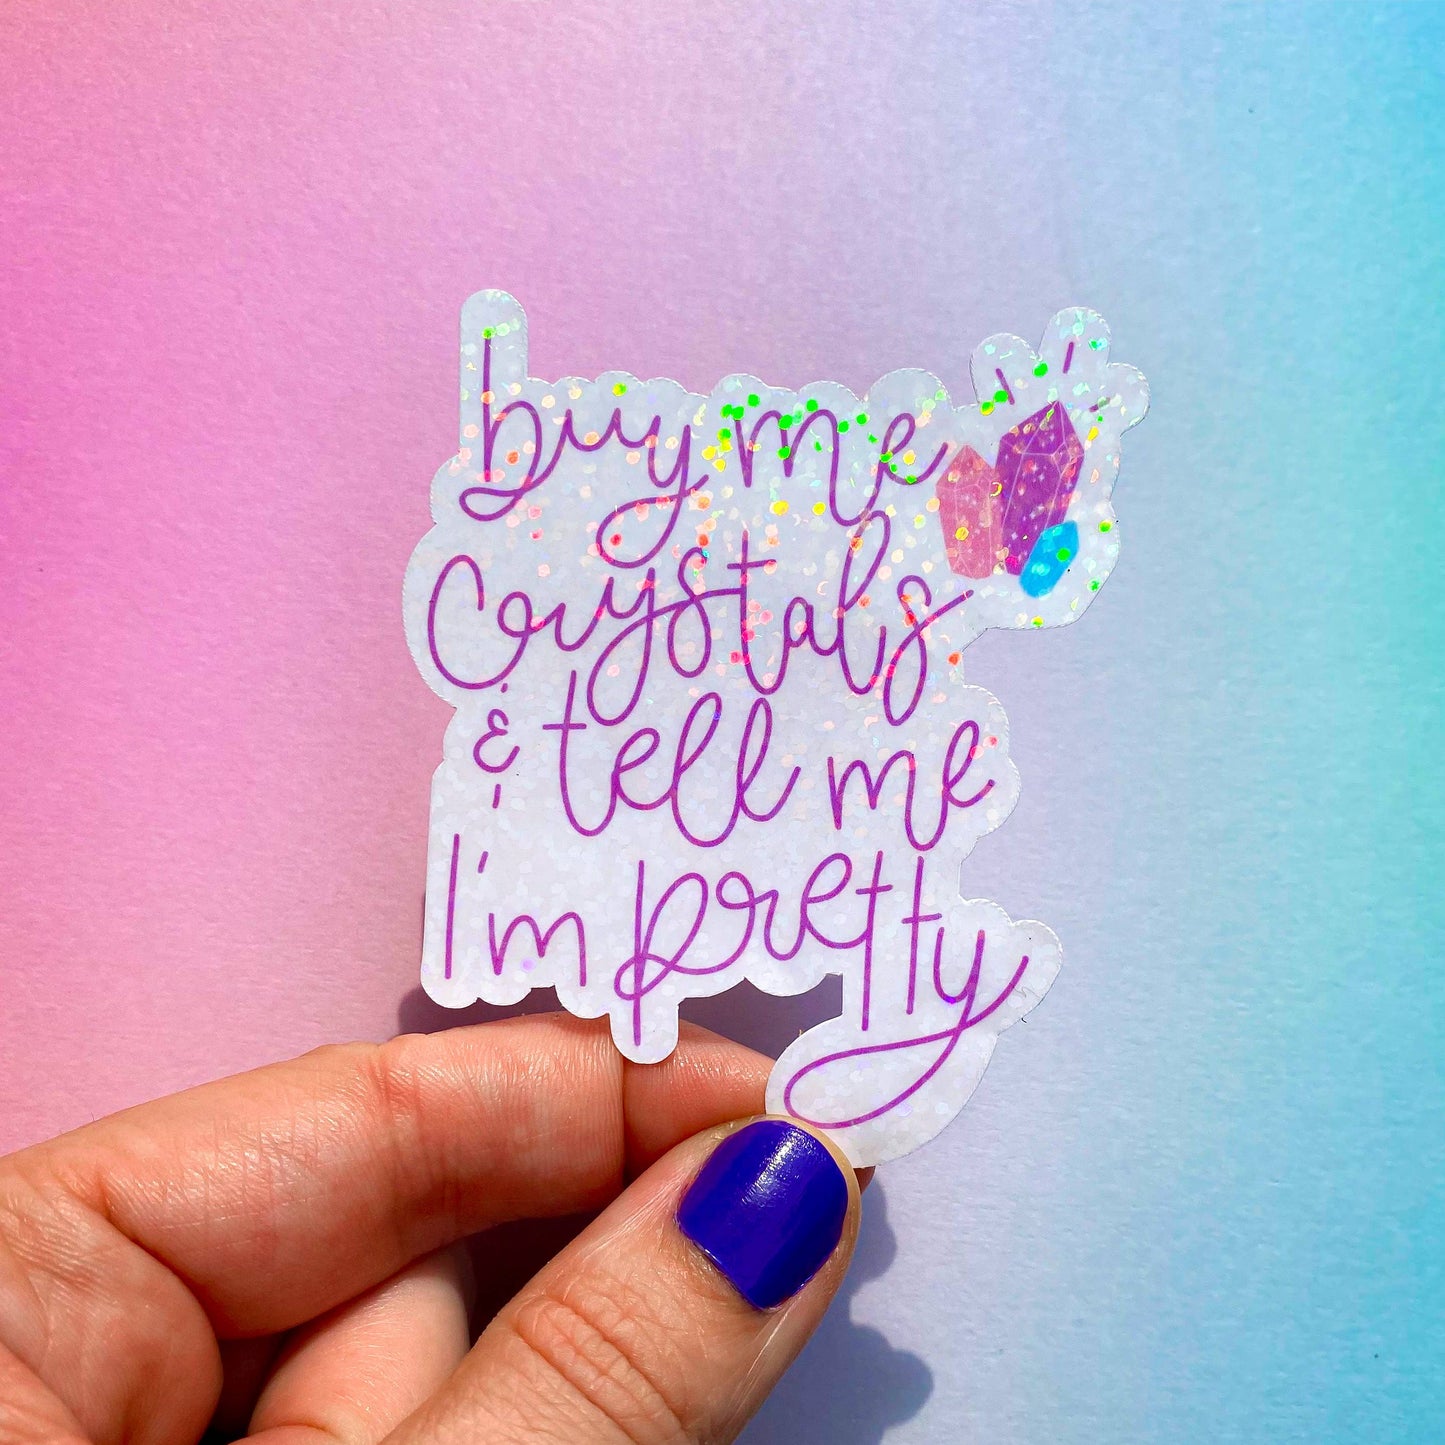 buy me
crystals
& tell me
I'm pretty